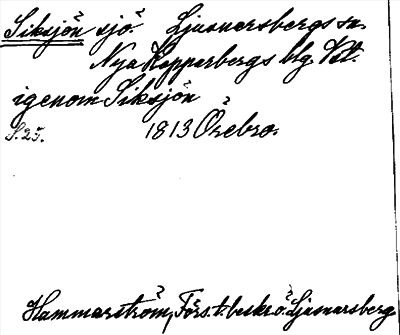 Siksjön sjö. Ljusnarsbergs sn.
Nya Kopparbergs blg. Vstl.
igenom Siksjön
S. 25. 1813 Örebro.
Hammarström, Förs. t. beskr. ö. Ljusnarsberg